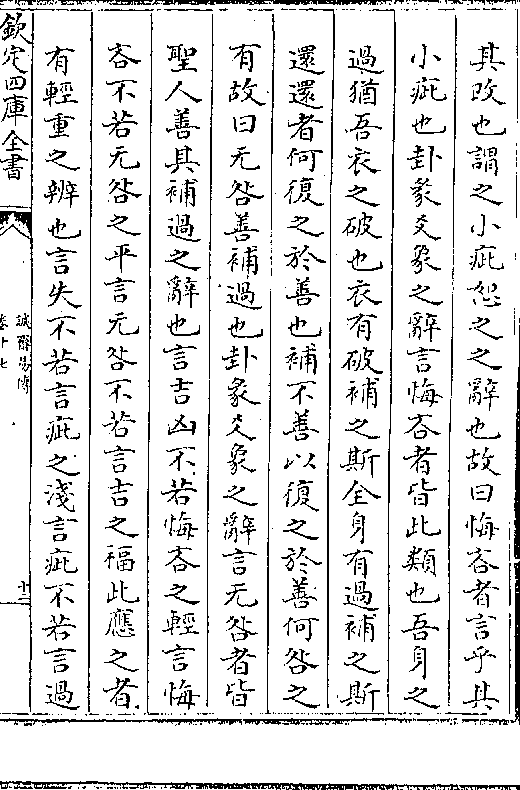 其改也謂之小疵恕之之辭也故曰悔吝者言乎其
小疵也卦彖爻象之辭言悔吝者皆此類也吾身之
過猶吾衣之破也衣有破補之斯全身有過補之斯
還還者何復之於善也補不善以復之於善何咎之
有故曰无咎善補過也卦彖爻象之辭言无咎者皆
聖人善其補過之辭也言吉凶不若悔吝之輕言悔
吝不若无咎之平言无咎不若言吉之福此應之者
有輕重之辨也言失不若言疵之淺言疵不若言過
欽定四庫全書
誠齋易傳
卷十七
十三